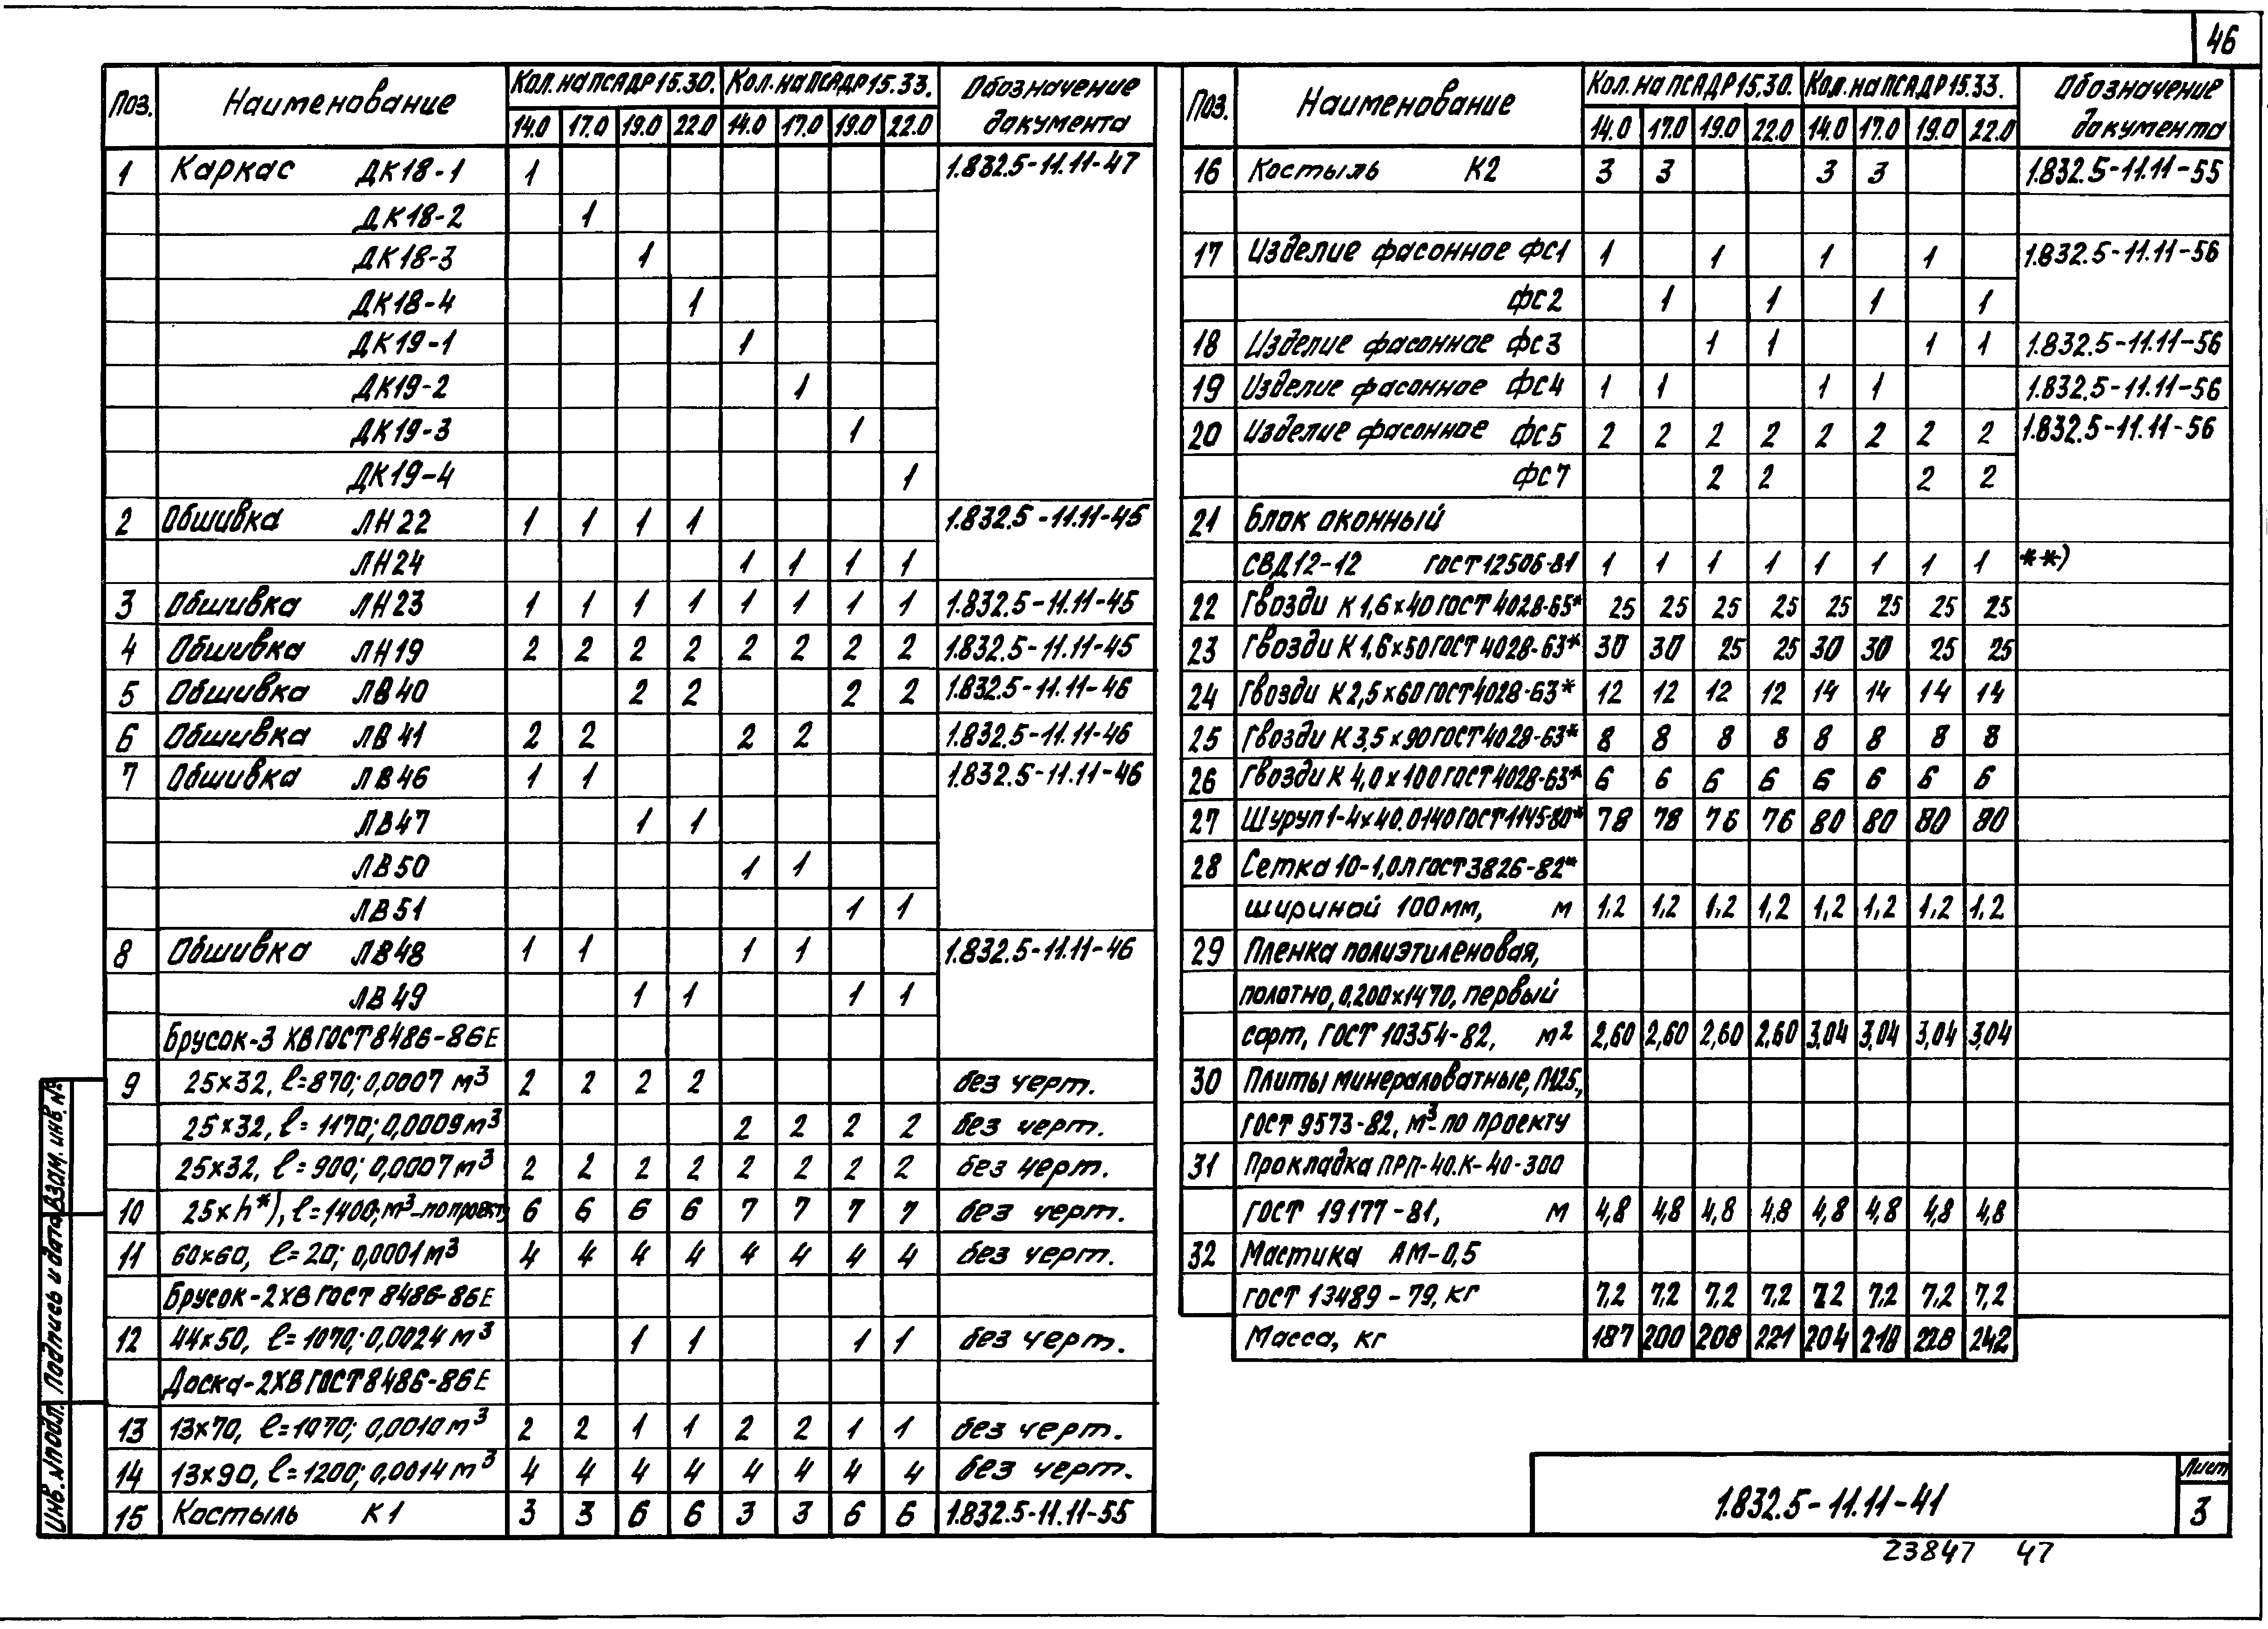 46
Поз. Наименование Кол. на ПСАДР 15.30. Кол. на ПСАДР 15.33. Обозначение документа
14.0 17.0 19.0 22.0 14.0 17.0 19.0 22.0
1 Каркас ДК18-1 1 1.832.5-11.11-47
ДК18-2 1
ДК18-3 1
ДК18-4 1
ДК19-1 1
ДК19-2 1
ДК19-3 1
ДК19-4 1
2 Обшивка ЛН22 1 1 1 1 1.832.5-11.11-45
ЛН24 1 1 1 1
3 Обшивка ЛН23 1 1 1 1 1 1 1 1 1.832.5-11.11-45
4 Обшивка ЛН19 2 2 2 2 2 2 2 2 1.832.5-11.11-45
5 Обшивка ЛВ40 2 2 2 2 1.832.5-11.11-46
6 Обшивка ЛВ41 2 2 2 2 1.832.5-11.11-46
7 Обшивка ЛВ46 1 1 1.832.5-11.11-46
ЛВ47 1 1
ЛВ50 1 1
ЛВ51 1 1
8 Обшивка ЛВ48 1 1 1 1 1.832.5-11.11-46
ЛВ49 1 1 1 1
Брусок-3 ХВ ГОСТ 8486-86Е
9 25×32, ℓ=870; 0,0007 м³ 2 2 2 2 без черт.
25×32, ℓ=1170; 0,0009 м³ 2 2 2 2 без черт.
25×32, ℓ=900; 0,0007 м³ 2 2 2 2 2 2 2 2 без черт.
10 25×h*), ℓ=1400; м³-по проекту 6 6 6 6 7 7 7 7 без черт.
11 60×60, ℓ=20; 0,0001 м³ 4 4 4 4 4 4 4 4 без черт.
Брусок-2ХВ ГОСТ 8486-86Е
12 44×50, ℓ=1070; 0,0024 м³ 1 1 1 1 без черт.
Доска-2ХВ ГОСТ 8486-86Е
13 13×70, ℓ=1070; 0,0010 м³ 2 2 1 1 2 2 1 1 без черт.
14 13×90, ℓ=1200; 0,0014 м³ 4 4 4 4 4 4 4 4 без черт.
15 Костыль К1 3 3 6 6 3 3 6 6 1.832.5-11.11-55
Поз. Наименование Кол. на ПСАДР 15.30. Кол. на ПСАДР 15.33. Обозначение документа
14.0 17.0 19.0 22.0 14.0 17.0 19.0 22.0
16 Костыль К2 3 3 3 3 1.832.5-11.11-55
17 Изделие фасонное ФС1 1 1 1 1 1.832.5-11.11-56
ФС2 1 1 1 1
18 Изделие фасонное ФС3 1 1 1 1 1.832.5-11.11-56
19 Изделие фасонное ФС4 1 1 1 1 1.832.5-11.11-56
20 Изделие фасонное ФС5 2 2 2 2 2 2 2 2 1.832.5-11.11-56
ФС7 2 2 2 2
21 Блок оконный
СВД12-12 ГОСТ 12506-81 1 1 1 1 1 1 1 1 **)
22 Гвозди К 1,6×40 ГОСТ 4028-65* 25 25 25 25 25 25 25 25
23 Гвозди К 1,6×50 ГОСТ 4028-63* 30 30 25 25 30 30 25 25
24 Гвозди К 2,5×60 ГОСТ 4028-63* 12 12 12 12 14 14 14 14
25 Гвозди К 3,5×90 ГОСТ 4028-63* 8 8 8 8 8 8 8 8
26 Гвозди К 4,0×100 ГОСТ 4028-63* 6 6 6 6 6 6 6 6
27 Шуруп 1-4×40.0140 ГОСТ 1145-80* 78 78 76 76 80 80 80 80
28 Сетка 10-1,0Л ГОСТ 3826-82*
шириной 100 мм, м 1,2 1,2 1,2 1,2 1,2 1,2 1,2 1,2
29 Пленка полиэтиленовая,
полотно, 0,200×1470, первый
сорт, ГОСТ 10354-82, м² 2,60 2,60 2,60 2,60 3,04 3,04 3,04 3,04
30 Плиты минераловатные, П125.,
ГОСТ 9573-82, м³-по проекту
31 Прокладка ПРП-40.К-40-300
ГОСТ 19177-81, м 4,8 4,8 4,8 4,8 4,8 4,8 4,8 4,8
32 Мастика АМ-0,5
ГОСТ 13489-79, кг 7,2 7,2 7,2 7,2 7,2 7,2 7,2 7,2
Масса, кг 187 200 208 221 204 218 228 242
Инв. № подл. Подпись и дата Взам. инв. №
1.832.5-11.11-41
Лист
3
23847 47